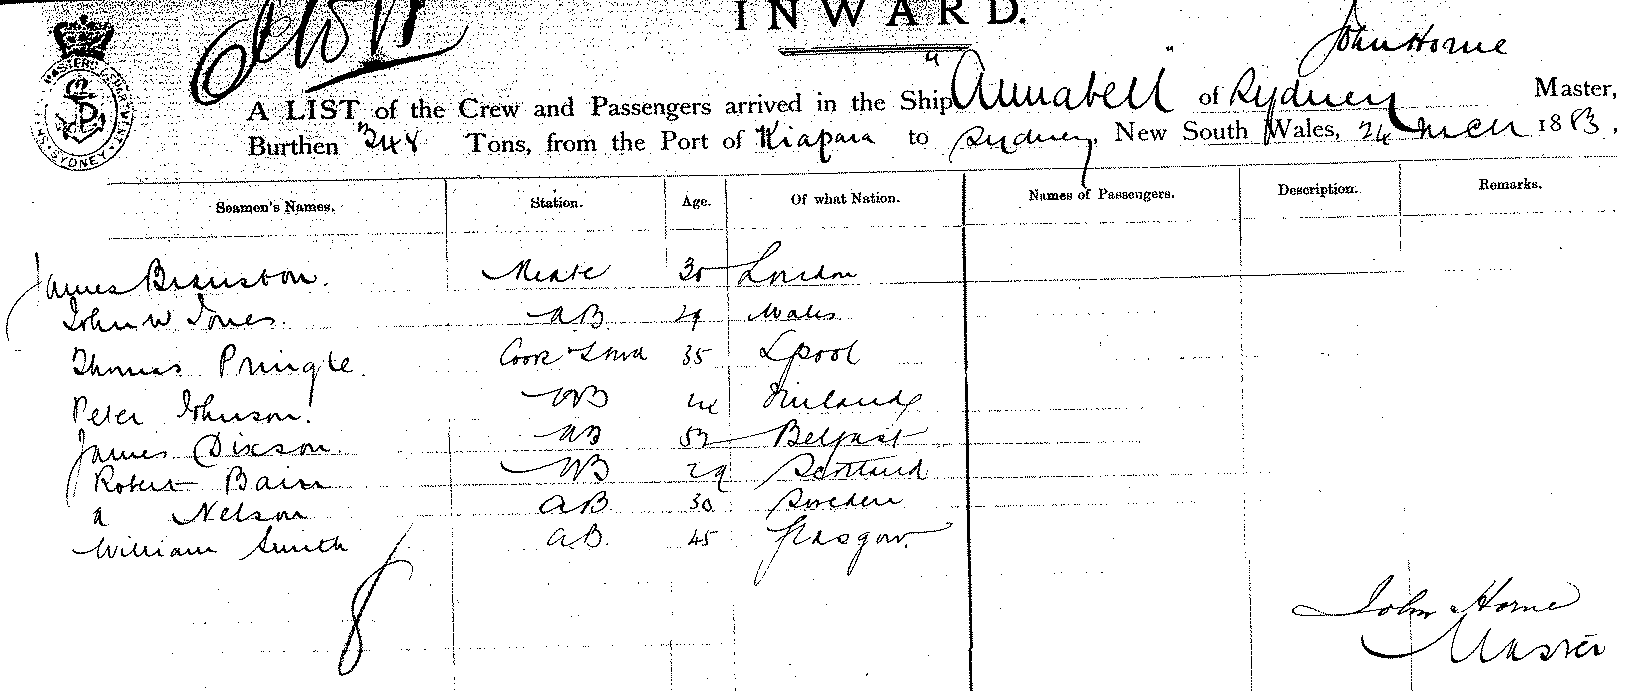 INWARD.
John Horne
A LIST of the Crew and Passengers arrived in the Ship "Annabell" of Sydney Master,
Burthen 348 Tons, from the Port of Kiapara to Sydney, New South Wales, 24 March 1883.
SYDNEY
Seamen's Names. Station. Age. Of what Nation. Names of Passengers. Description. Remarks.
James Mate 30 London
John W Jones. AB 29 Wales
Thomas Pringle. Cook & Stwd 35 Lpool
Peter Johnson. AB 24 Finland
James Dixson. AB 52 Belfast
Robert Bain AB 29 Scotland
A Nelson AB 30 Sweden
William Smith AB. 45 Glasgow.
8
John Horne
Master